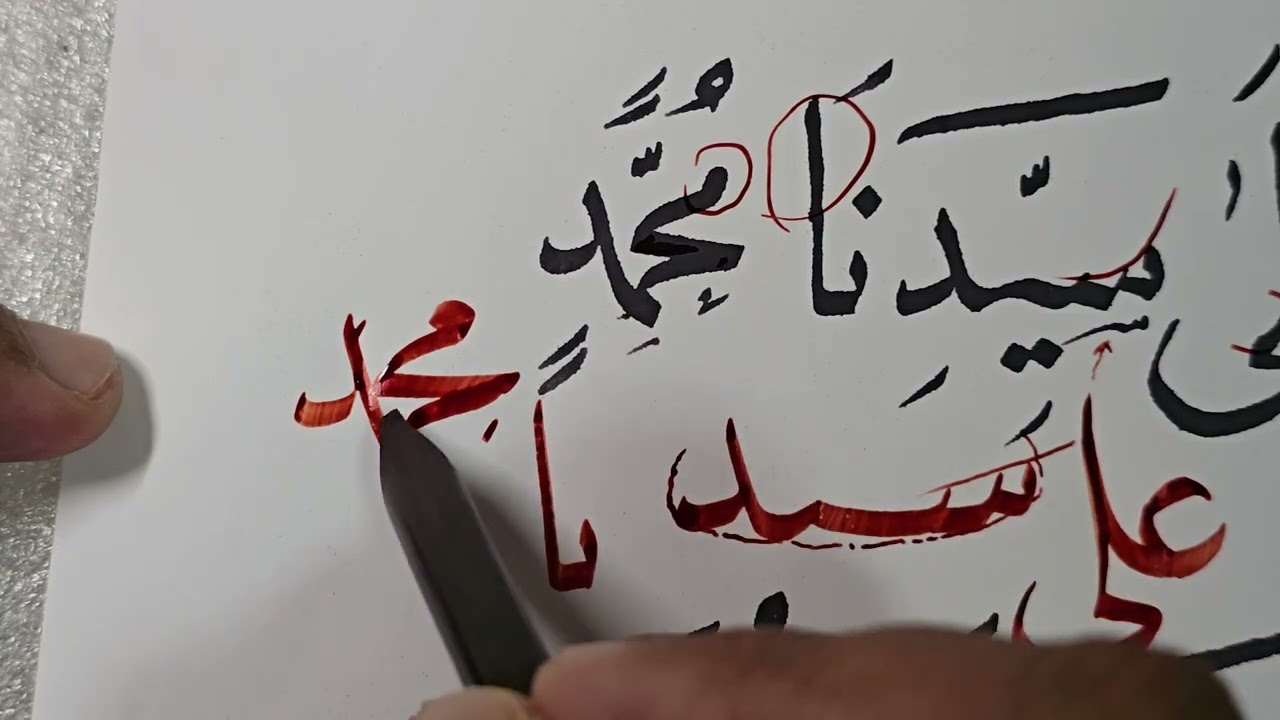 سَيِّدِنَا مُحَمَّدٍ
على سيدنا محمد